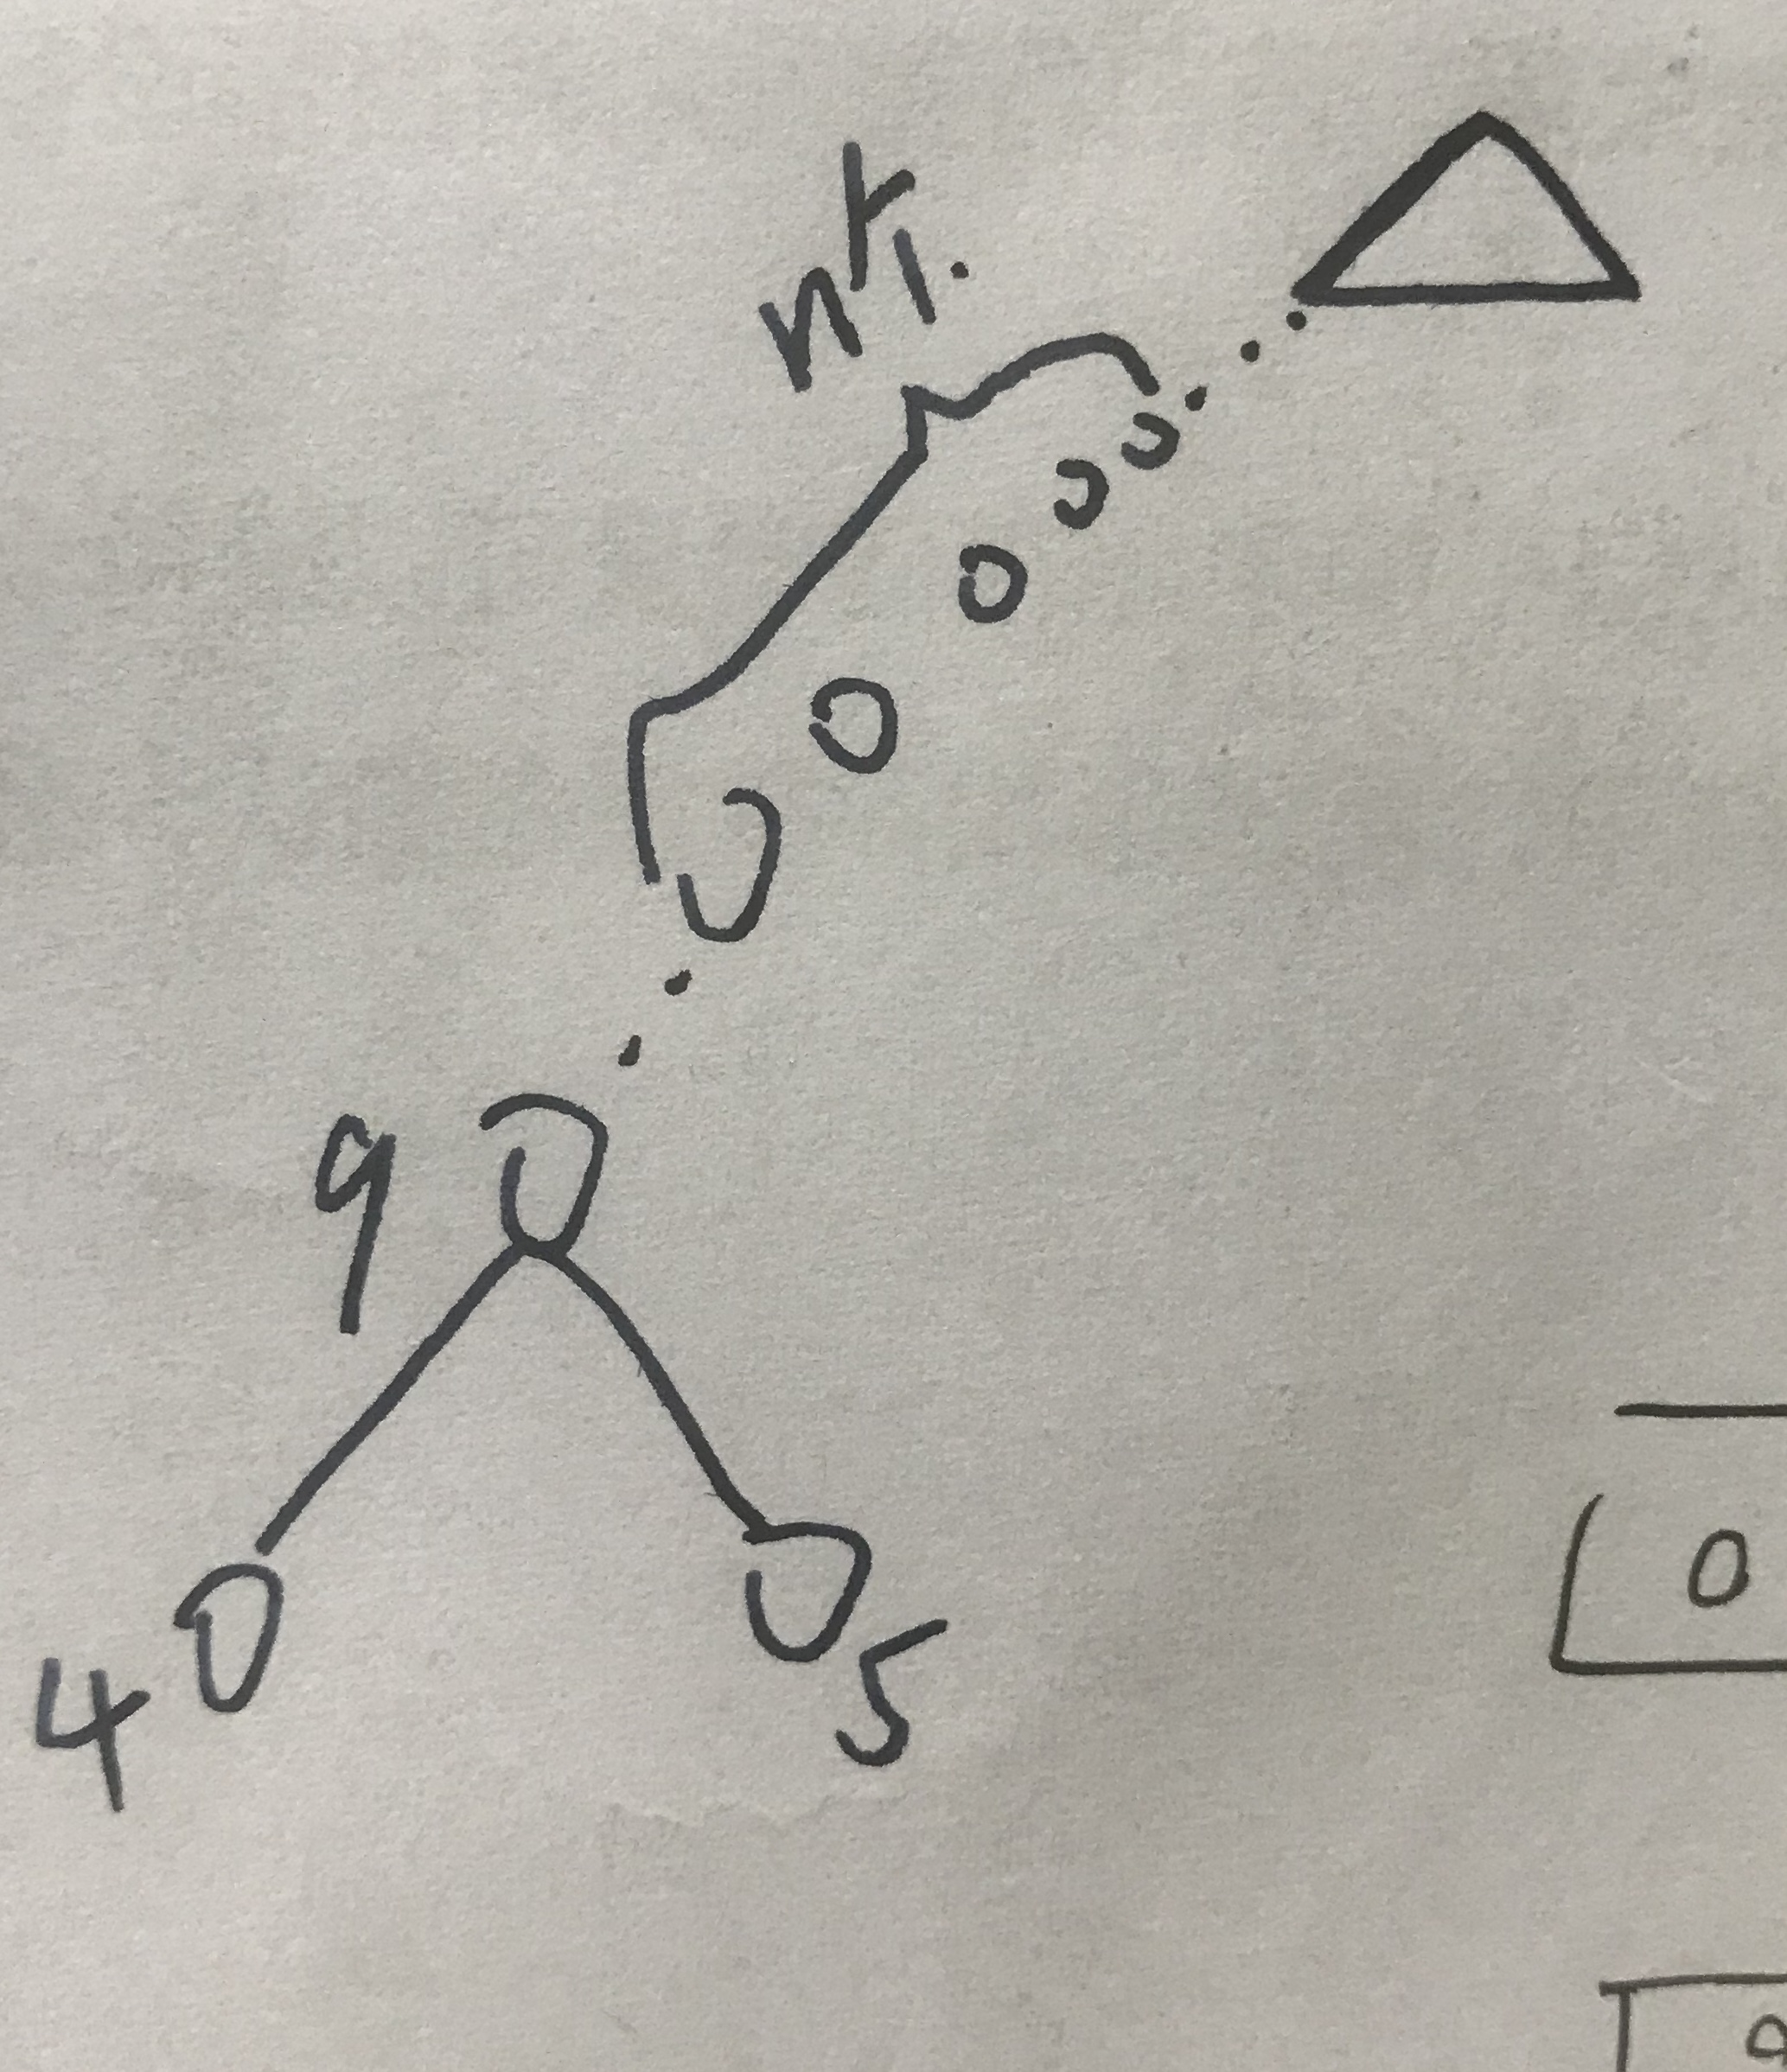 n个.
9
4
5
0